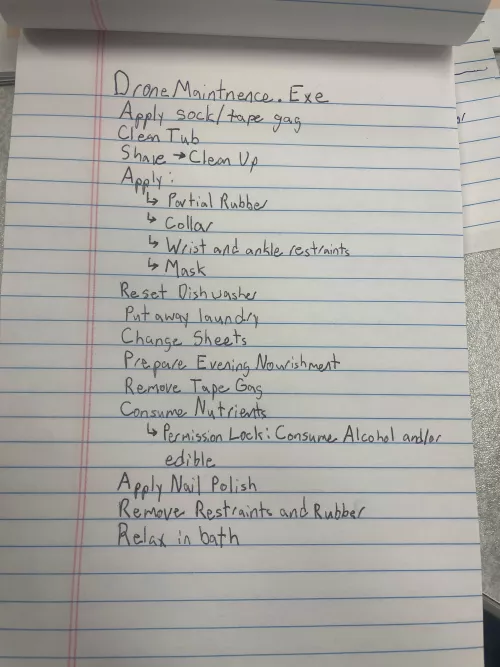 DroneMaintnence.Exe
Apply sock/tape gag
Clean Tub
Shave → Clean Up
Apply:
↳ Partial Rubber
↳ Collar
↳ Wrist and ankle restraints
↳ Mask
Reset Dishwasher
Put away laundry
Change Sheets
Prepare Evening Nourishment
Remove Tape Gag
Consume Nutrients
↳ Permission Lock: Consume Alcohol and/or
edible
Apply Nail Polish
Remove Restraints and Rubber
Relax in bath